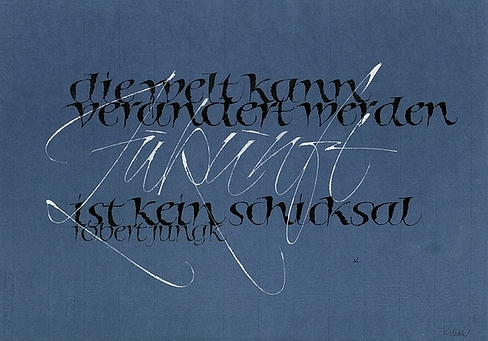 die welt kann
verändert werden
Zukunft
ist kein schicksal
robert jungk